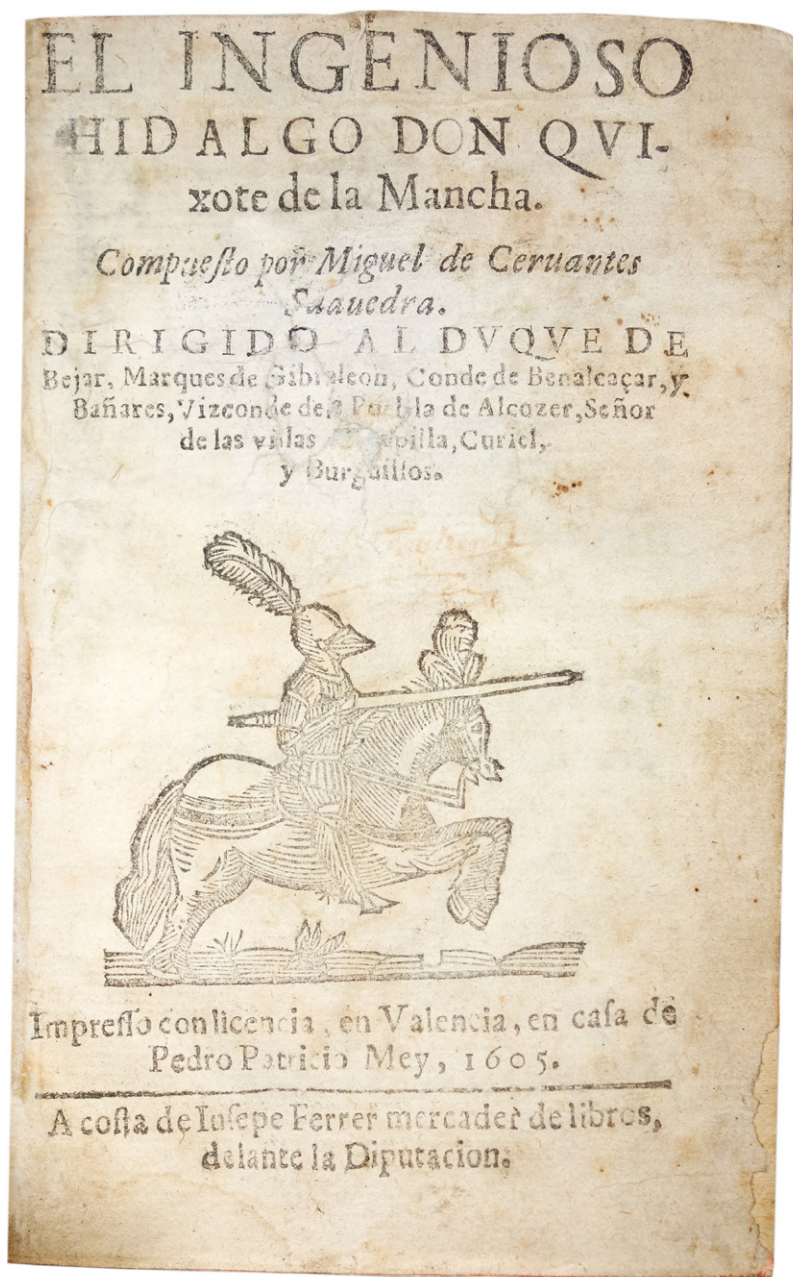 EL INGENIOSO
HIDALGO DON QVI-
xote de la Mancha.
Compueſto por Miguel de Ceruantes
Saauedra.
DIRIGIDO AL DVQVE DE
Bejar, Marques de Gibraleon, Conde de Benalcaçar, y
Bañares, Vizconde de la Puebla de Alcozer, Señor
de las villas Curiel,
y Burguillos.
Impreſſo con licencia, en Valencia, en caſa de
Pedro Patricio Mey, 1605.
A coſta de Iuſepe Ferrer mercader de libros,
delante la Diputacion.